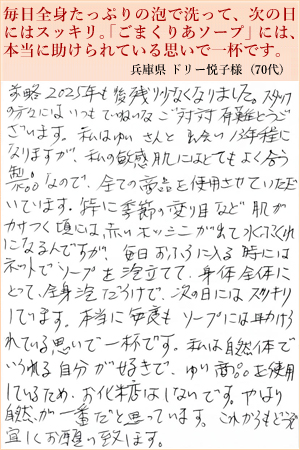 毎日全身たっぷりの泡で洗って、次の日
にはスッキリ。「ごまくりあソープ」には、
本当に助けられている思いで一杯です。
兵庫県 ドリー悦子様（70代）
前略 2025年も後残り少なくなりました。スタッフ
の方々にはいつもていねいなご対応有難とうご
ざいます。私はゆいさんと出会い13年程に
なりますが、私の敏感肌にはとてもよく合う
製品なので、全ての商品を使用させていただ
いています。特に季節の変り目など肌が
カサつく頃には、赤いシッシンが出て水ぶくれ
になるんですが、毎日おふろに入る時には
ネットでソープを泡立てて、身体全体に
とって、全身泡だらけで、次の日にはスッキリ
しています。本当に毎度もソープには助けら
れている思いで一杯です。私は自然体で
いられる自分が好きで、ゆい商品を使用
しているため、お化粧はしないです。やはり
自然が一番だと思っています。これからもどうぞ
宜しくお願い致します。